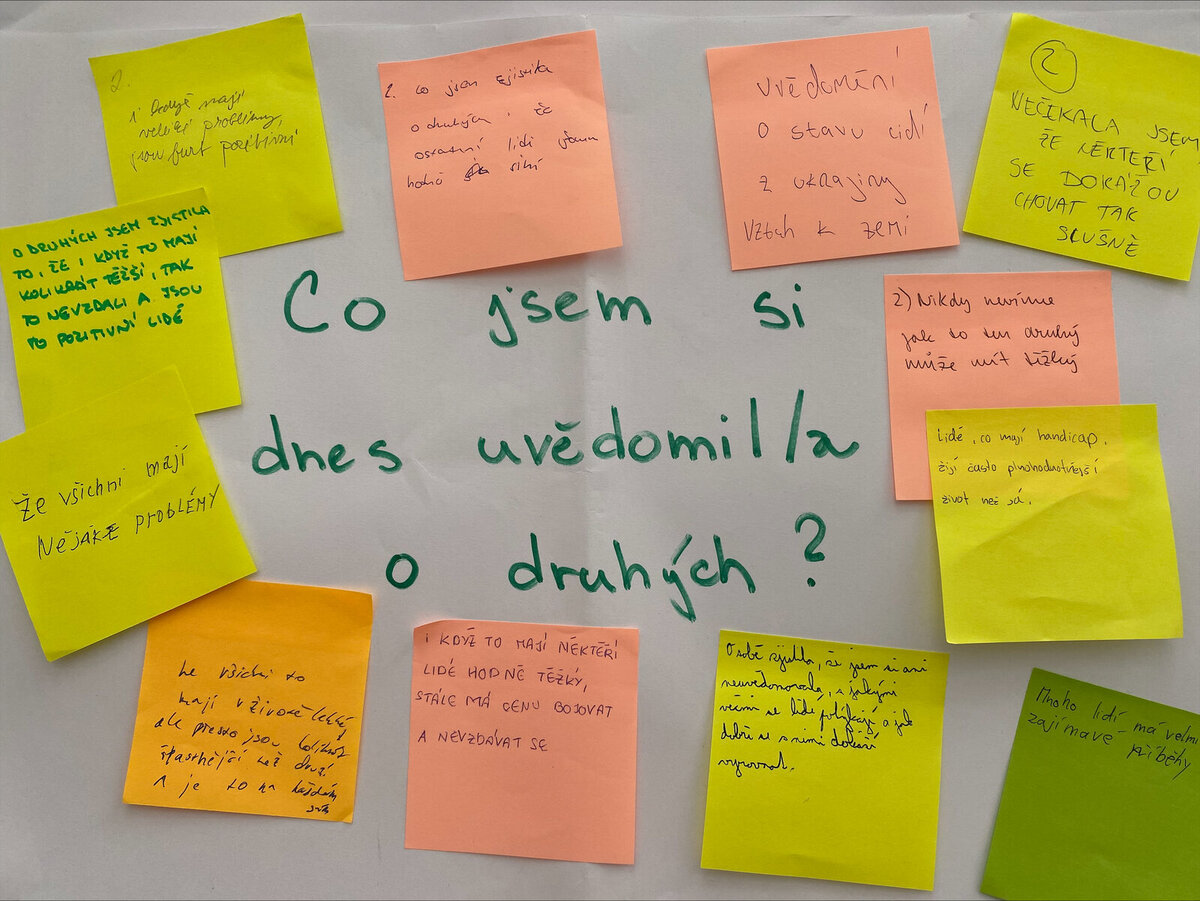 2.
i když mají
veliké problémy,
jsou furt pozitivní
2. co jsem zjistila
o druhých, že
ostatní lidi jsou
hodně silní
Uvědomění
o stavu lidí
z ukrajiny
vztah k zemi
2
NEČEKALA JSEM
ŽE NĚKTEŘÍ
SE DOKÁŽOU
CHOVAT TAK
SLUŠNĚ
O DRUHÝCH JSEM ZJISTILA
TO, ŽE I KDYŽ TO MAJÍ
KOLIKRÁT TĚŽŠÍ, TAK
TO NEVZDALI A JSOU
TO POZITIVNÍ LIDÉ
Co jsem si
dnes uvědomil/a
o druhých?
2) Nikdy nevíme
jak to ten druhý
může mít těžký
Lidé, co mají handicap,
žijí často plnohodnotnější
život než já.
Že všichni mají
Nějaké problémy
ne všichni to
mají v životě lehké
ale přesto jsou kolikrát
šťastnější než druzí
A je to na každém
I KDYŽ TO MAJÍ NĚKTEŘÍ
LIDÉ HODNĚ TĚŽKÝ,
STÁLE MÁ CENU BOJOVAT
A NEVZDÁVAT SE
O sobě zjistila, že jsem si ani
neuvědomovala, s jakými
věcmi se lidé potýkají a jak
dobře se s nimi dokáží
vyrovnat.
Mnoho lidí má velmi
zajímavé příběhy